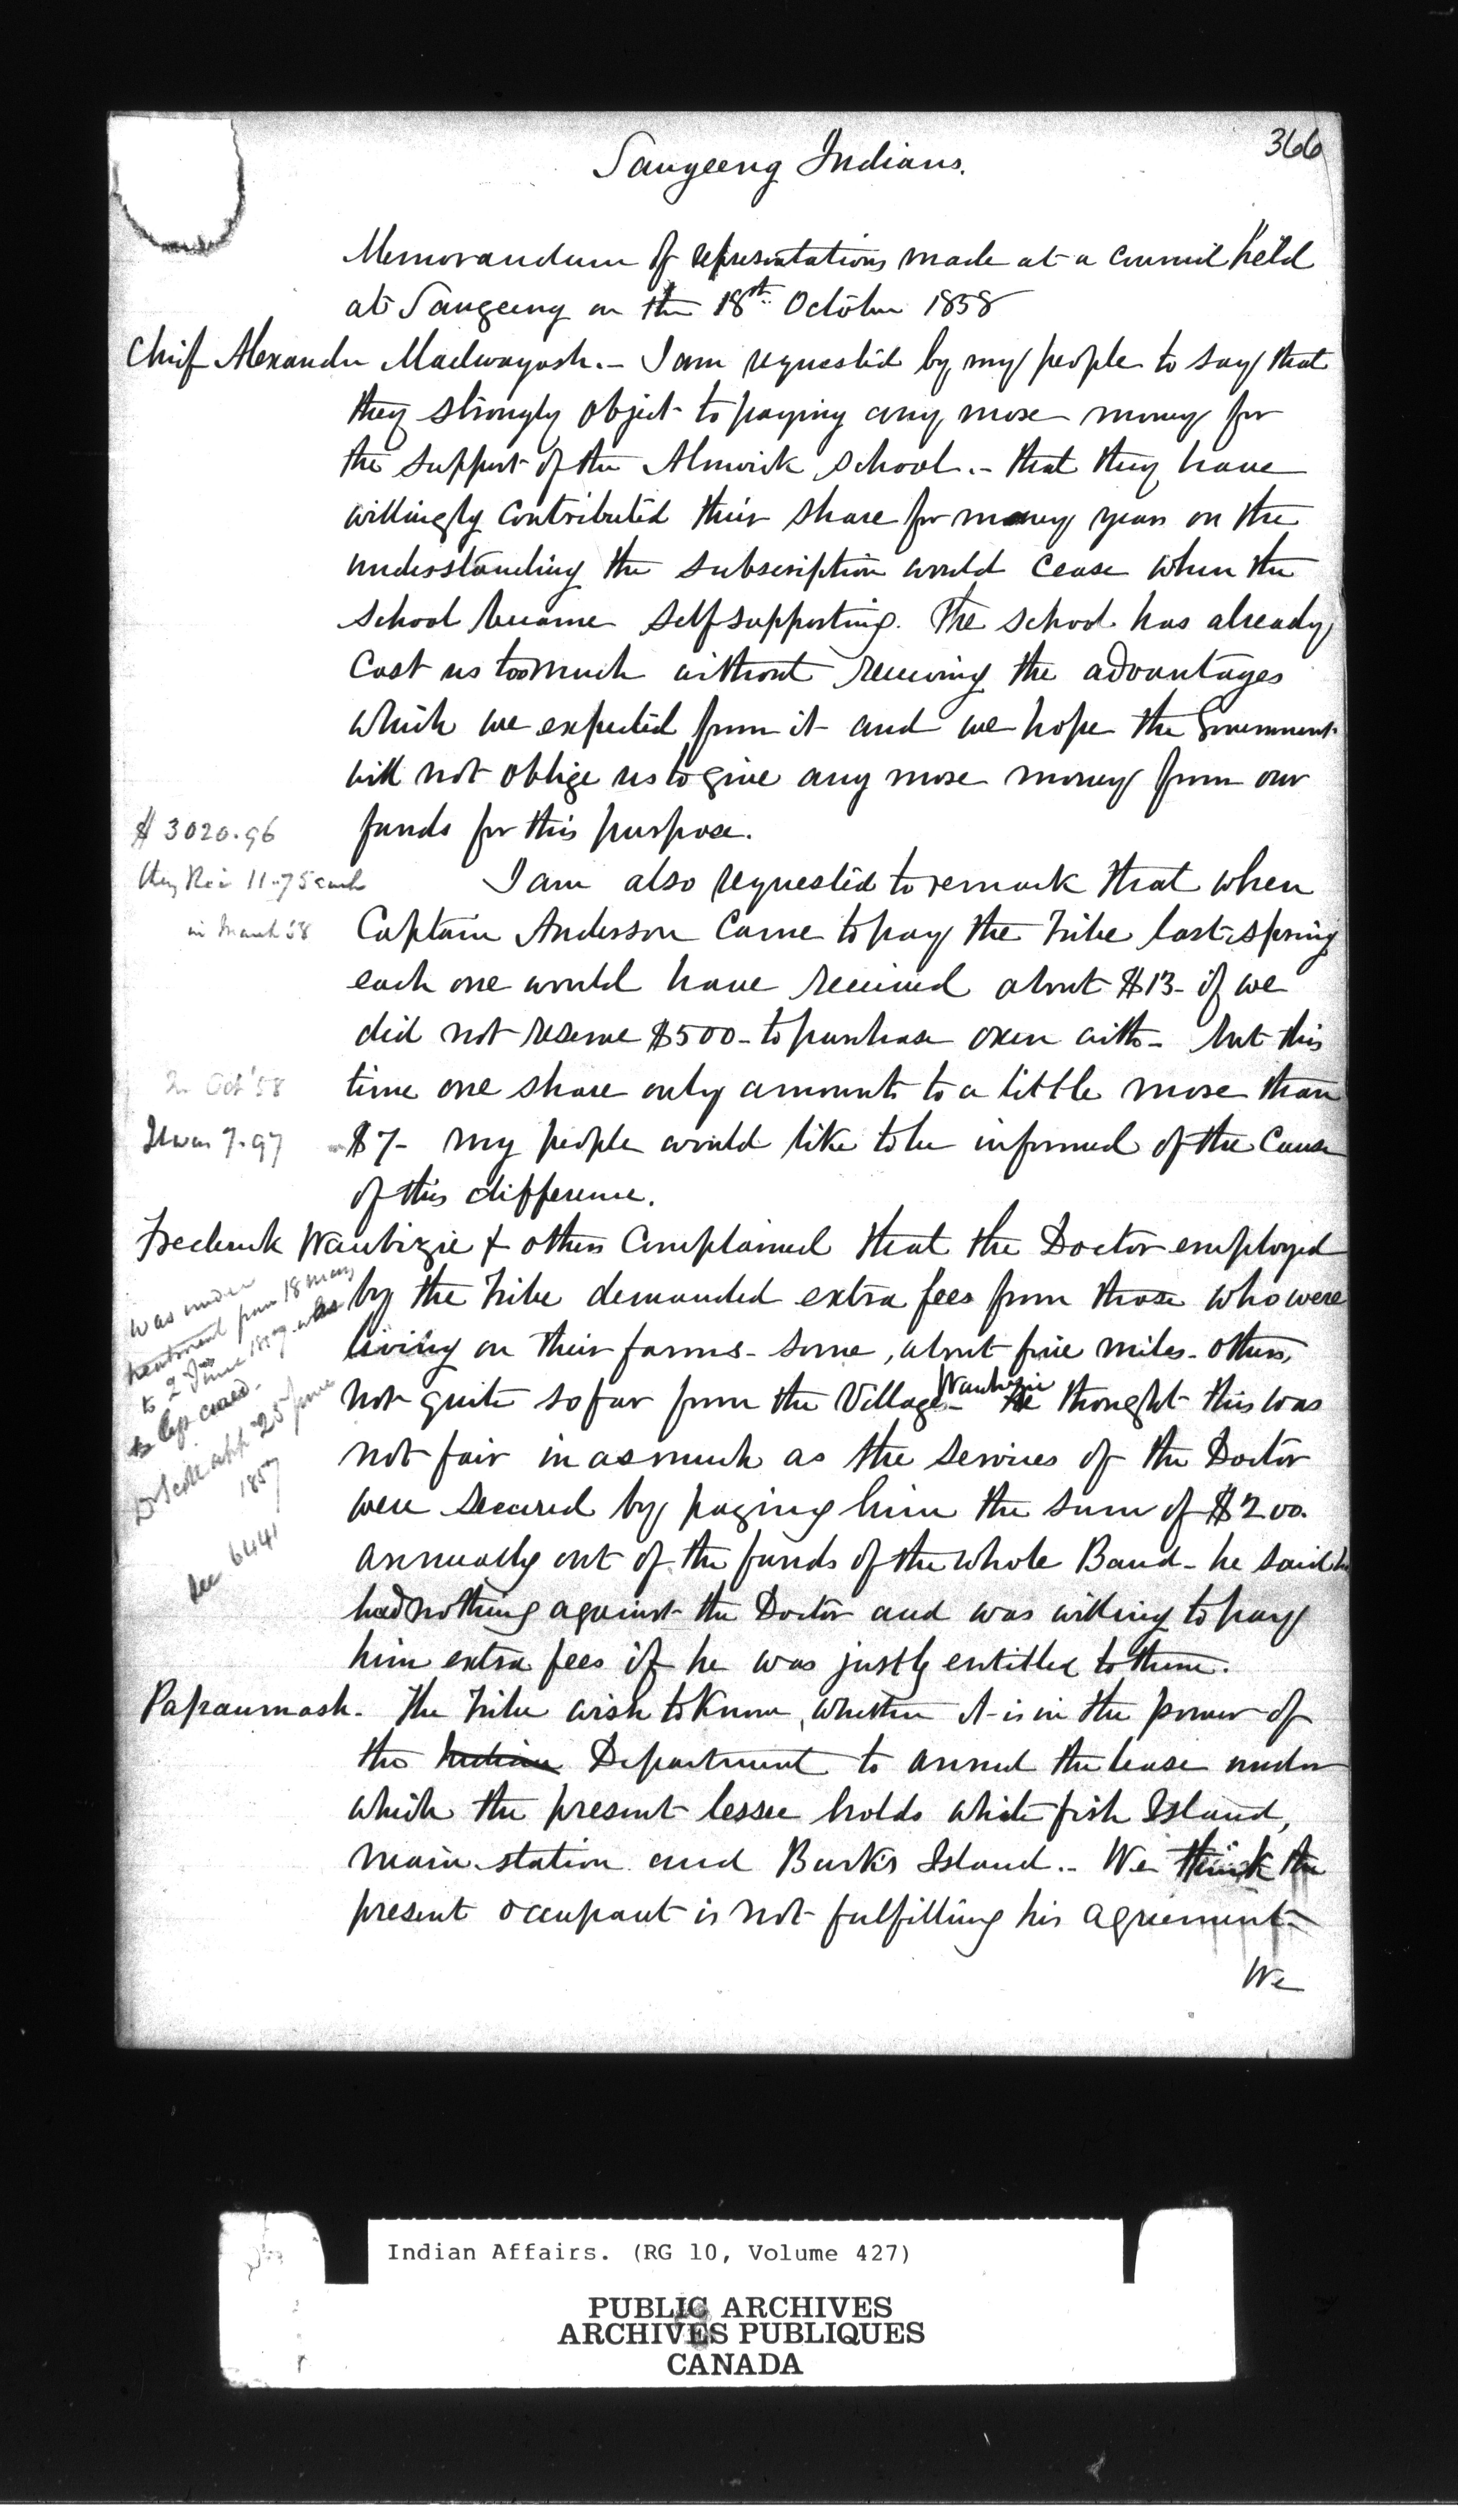 366
Saugeeng Indians.
Memorandum of representations made at a Council held
at Saugeeng on the 18th October 1858
Chief Alexander Madwayosh. - I am requested by my people to say that
they strongly object to paying any more money for
the support of the Alnwick school. - that they have
willingly contributed their share for many years on the
understanding the subscription would cease when the
school became self supporting. The school has already
cost us too much without receiving the advantages
which we expected from it and we hope the Government
will not oblige us to give any more money from our
funds for this purpose.
$ 3020.96
they Rec 11.75 each
in March 58
I am also requested to remark that when
Captain Anderson came to pay the Tribe last spring
each one would have received about $13 - if we
did not reserve $500 - to purchase oxen with - but this
In Oct '58
time one share only amounts to a little more than
It was 7.97
$7 - my people would like to be informed of the Cause
of this difference.
Frederick Waubizie & others Complained that the Doctor employed
by the Tribe demanded extra fees from those who were
living on their farms - some, about five miles - others,
not quite so far from the Village - Waubizie he thought this was
not fair in as much as the services of the Doctor
were secured by paying him the sum of $200.
annually out of the funds of the whole Band - he said he
had nothing against the Doctor and was willing to pay
him extra fees if he was justly entitled to them.
was under
treatment from 18 May
to 2d June 1857 when
he left cured.
Dr Scott app 25 June
1857
See 6441
Papaumosh. The Tribe wish to Know, whether it is in the power of
the Indian Department to annul the lease under
which the present lessee holds white fish Island,
main station and Burk's Island. - We think the
present occupant is not fulfilling his agreement -
We
Indian Affairs. (RG 10, Volume 427)
PUBLIC ARCHIVES
ARCHIVES PUBLIQUES
CANADA